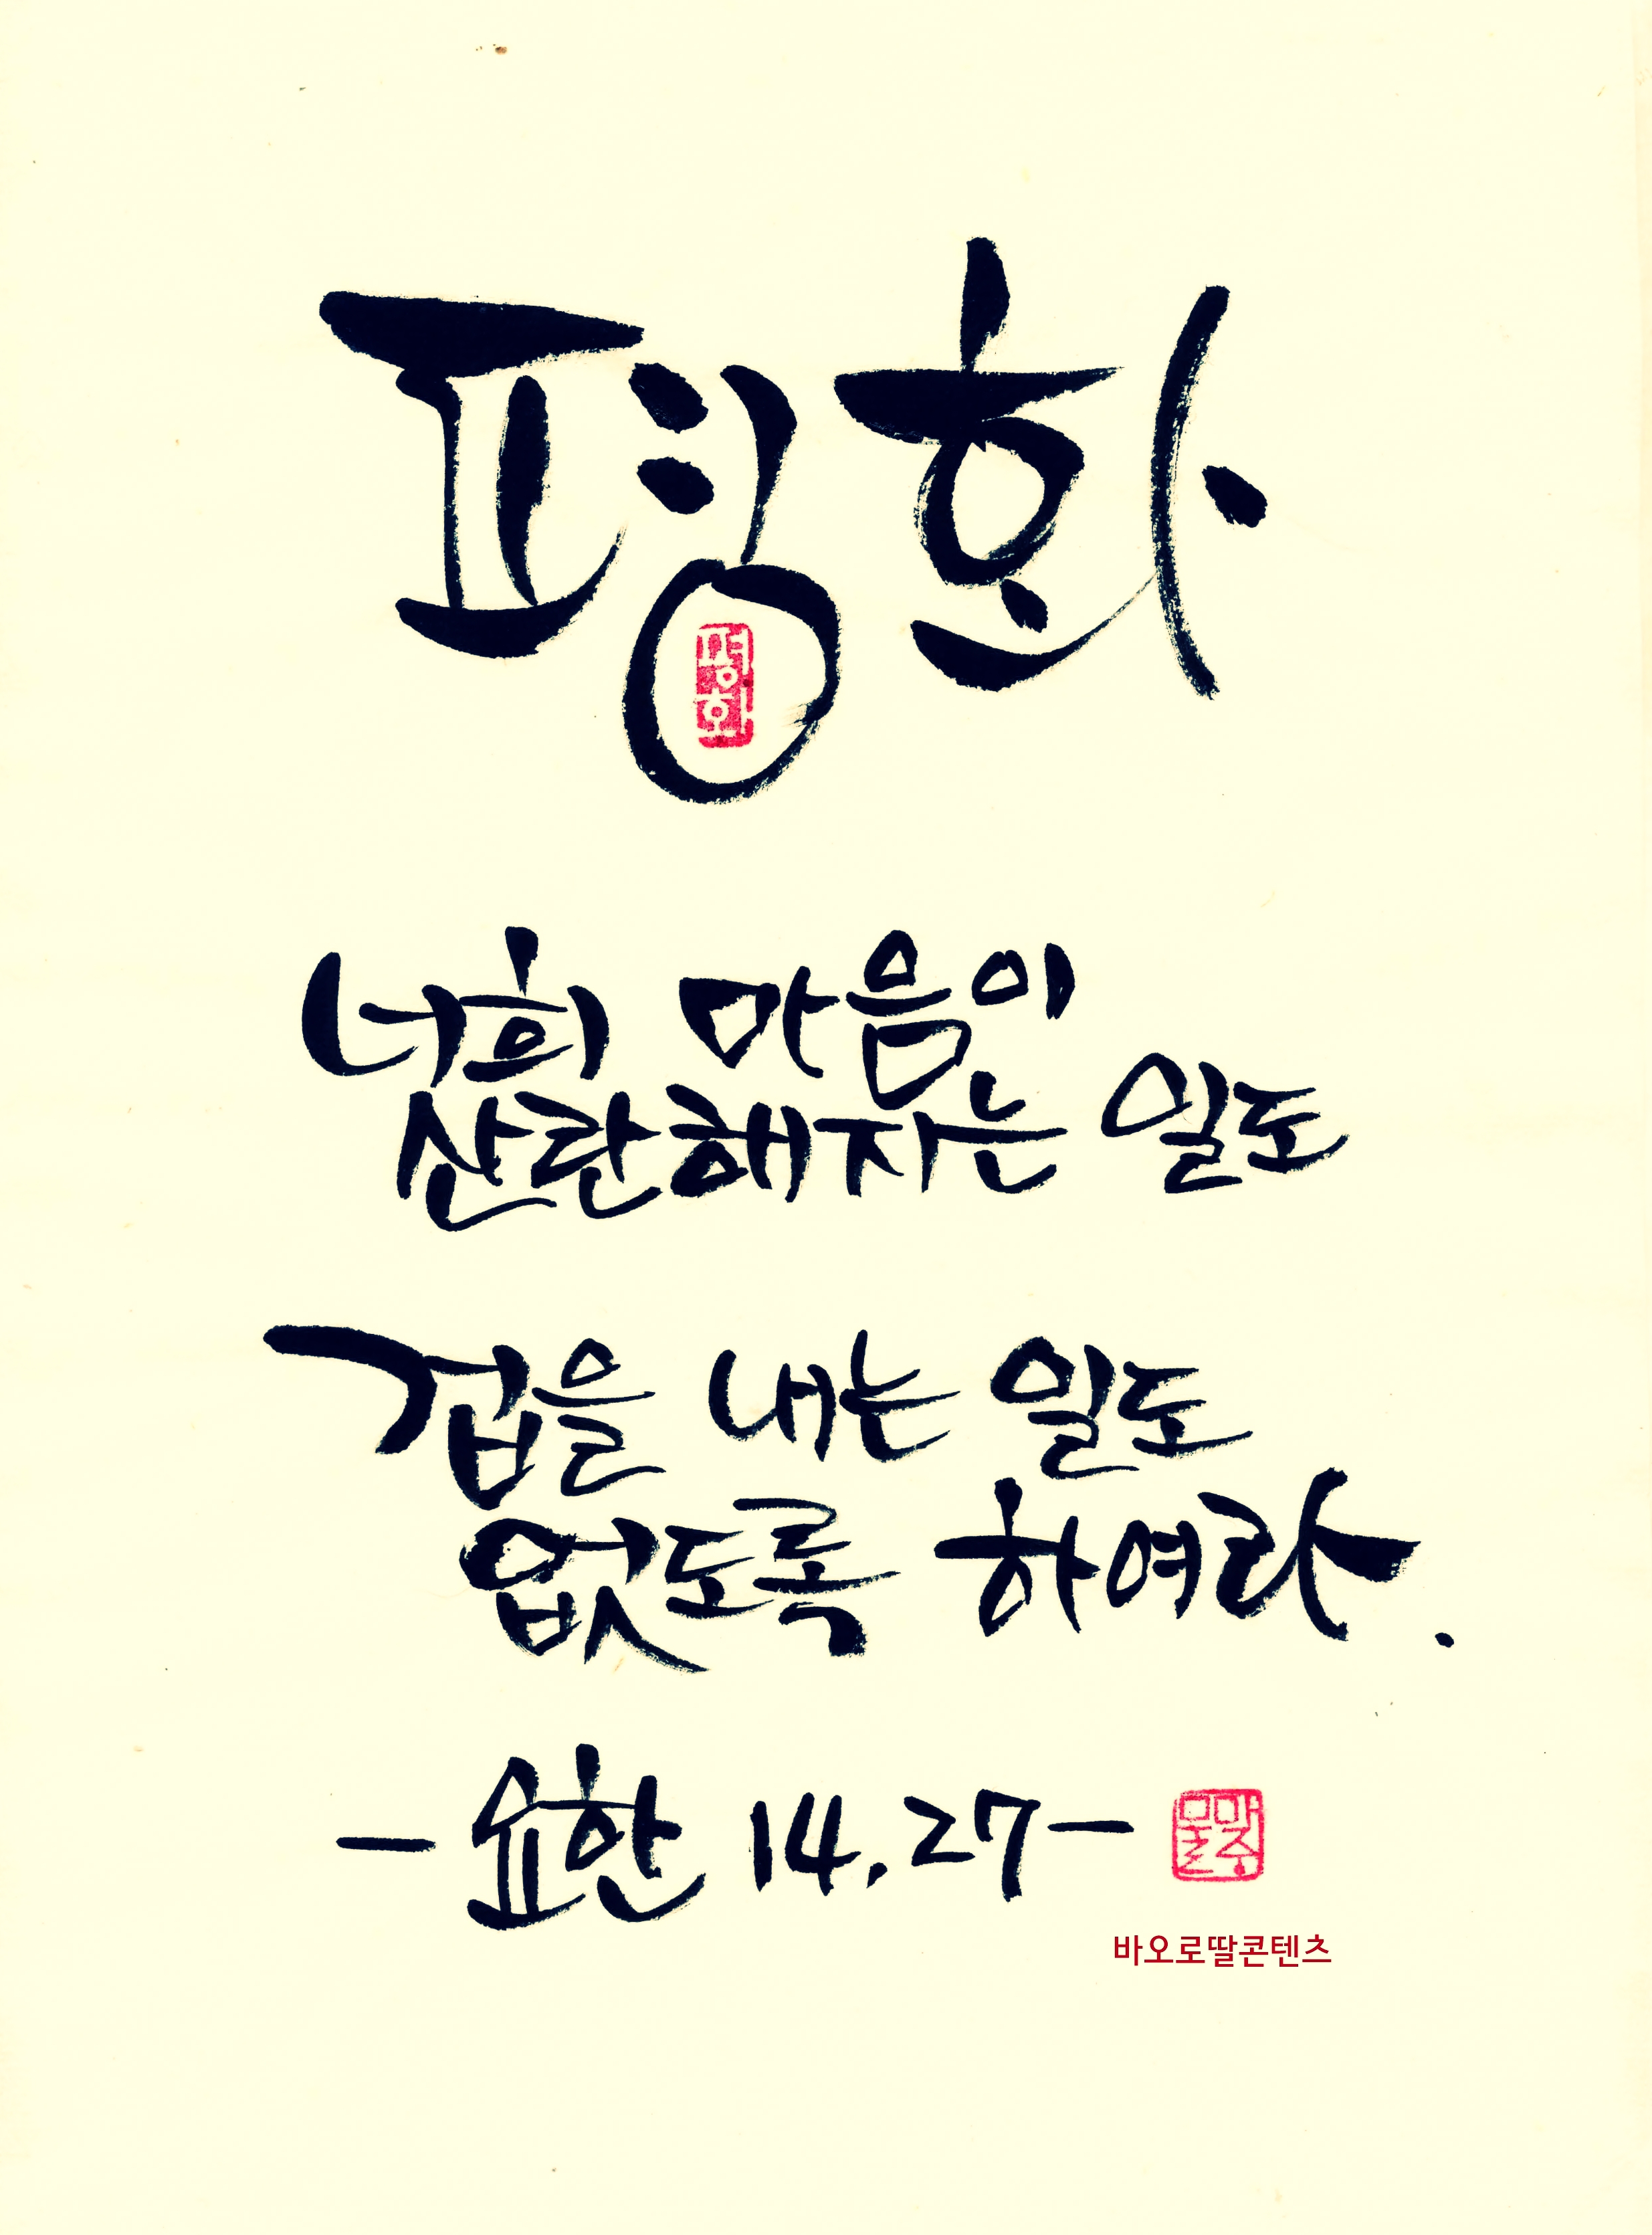 평화
평화
너희 마음이
산란해지는 일도
겁을 내는 일도
없도록 하여라.
- 요한 14.27 -
바오로딸콘텐츠